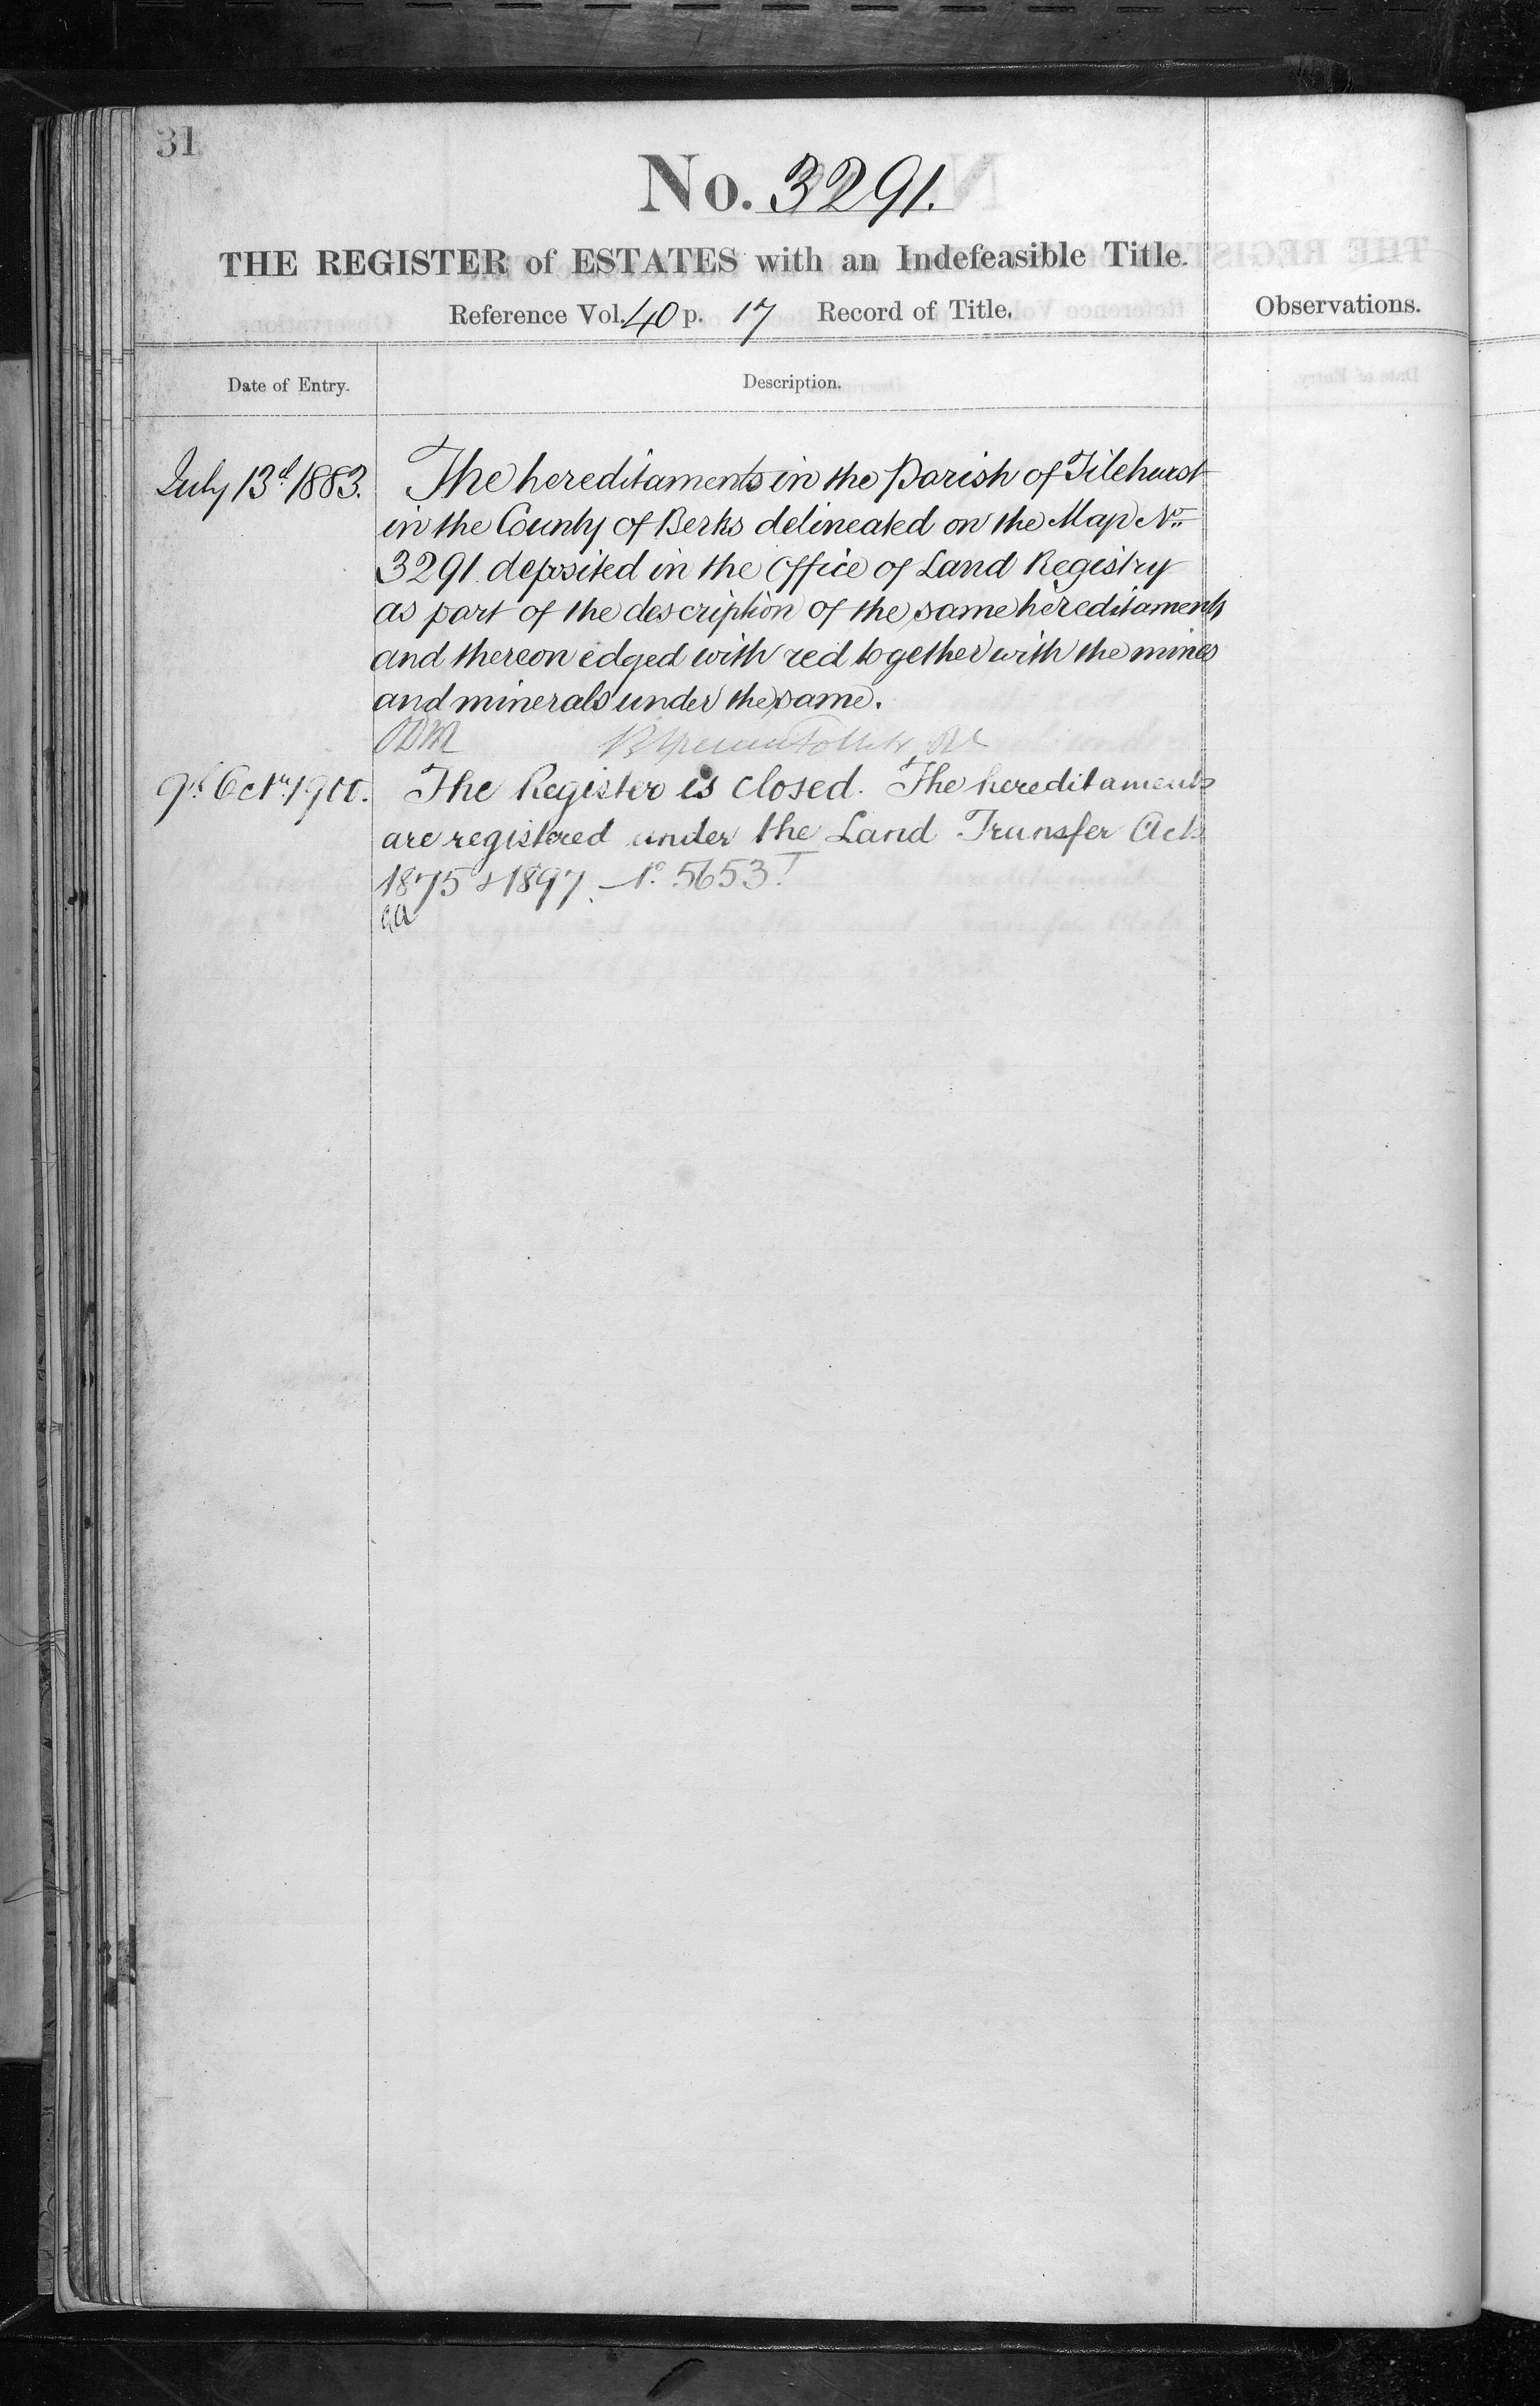 31
No. 3291.
THE REGISTER of ESTATES with an Indefeasible Title.
Reference Vol. 40 p. 17 Record of Title.
Observations.
Date of Entry.
Description.
July 13th 1883.
The hereditaments in the Parish of Tilehurst
in the County of Berks delineated on the Map No
3291 deposited in the Office of Land Registry
as part of the description of the same hereditaments
and thereon edged with red together with the mines
and minerals under the same.
9th Octr. 1900.
The Register is closed. The hereditaments
are registered under the Land Transfer Acts
1875 & 1897. No. 5653